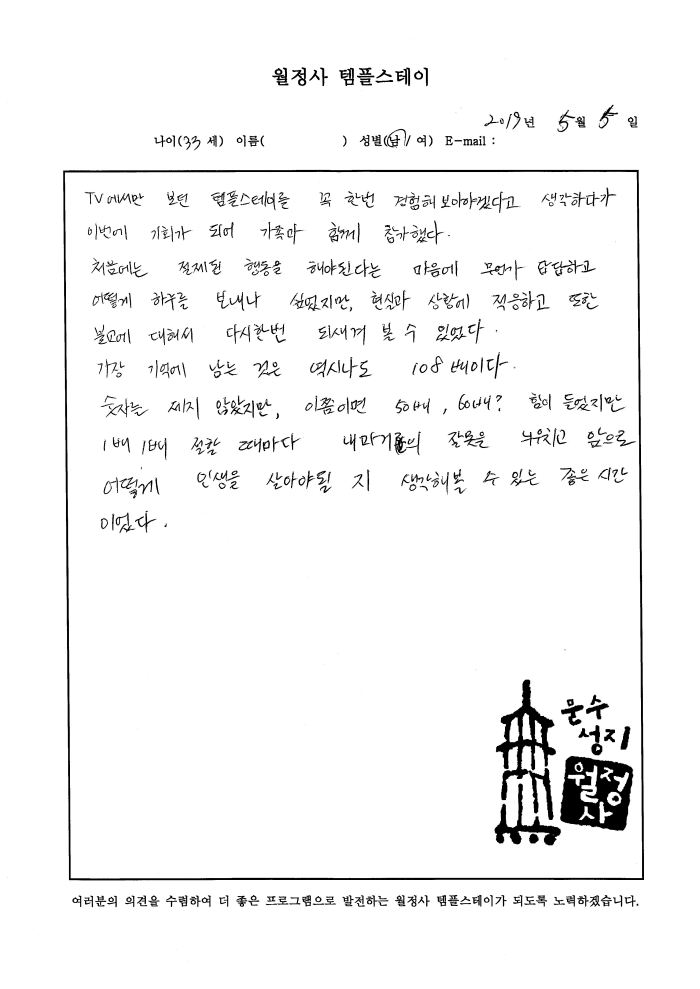 월정사 템플스테이
2019년 5월 5일
나이(33 세) 이름( ) 성별(남/ 여) E-mail :
TV에서만 보던 템플스테이를 꼭 한번 경험해 보아야겠다고 생각하다가
이번에 기회가 되어 가족과 함께 참가했다.
처음에는 절제된 행동을 해야된다는 마음에 무언가 답답하고
어떻게 하루를 보내나 싶었지만, 현실과 상황에 적응하고 또한
불교에 대해서 다시한번 되새겨 볼 수 있었다.
가장 기억에 남는 것은 역시나도 108배이다.
숫자를 세지 않았지만, 이쯤이면 50배, 60배? 힘이 들었지만
1배 1배 절할 때마다 내과거의 잘못을 뉘우치고 앞으로
어떻게 인생을 살아야될 지 생각해볼 수 있는 좋은 시간
이었다.
문수
성지
월정
사
여러분의 의견을 수렴하여 더 좋은 프로그램으로 발전하는 월정사 템플스테이가 되도록 노력하겠습니다.